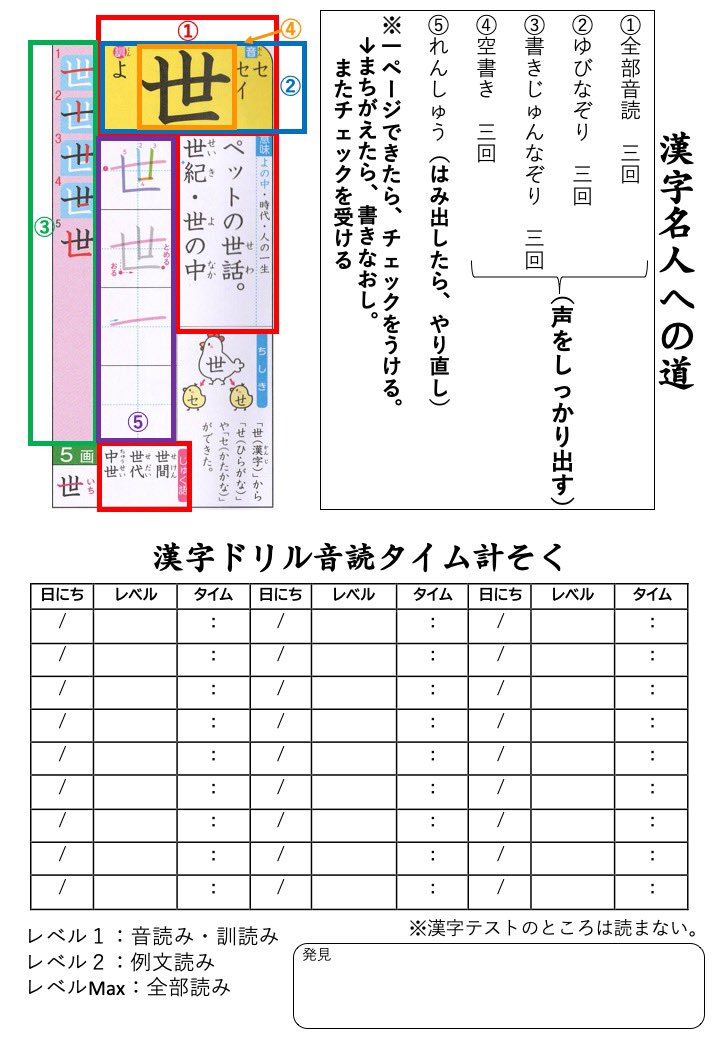 漢字名人への道
①全部音読　三回
②ゆびなぞり　三回
③書きじゅんなぞり　三回
④空書き　三回
（声をしっかり出す）
⑤れんしゅう（はみ出したら、やり直し）
※一ページできたら、チェックをうける。
→まちがえたら、書きなおし。
またチェックを受ける
①
④
②
③
⑤
音
セ
セイ
世
訓
よ
意味 よの中・時代・人の一生
ペットの世話。
せわ
世紀・世の中
せいき
よ
なか
1
2
3
4
5
世
世
とめる
おる
ちしき
世
セ
せ
「世（漢字）」から
かんじ
「せ（ひらがな）」
や「セ（カタカナ）」
ができた。
じゅく語
世間
せけん
世代
せだい
中世
ちゅうせい
5画
世
いち
漢字ドリル音読タイム計そく
日にち レベル タイム 日にち レベル タイム 日にち レベル タイム
/ : / : / :
/ : / : / :
/ : / : / :
/ : / : / :
/ : / : / :
/ : / : / :
/ : / : / :
/ : / : / :
/ : / : / :
レベル１：音読み・訓読み
レベル２：例文読み
レベルMax：全部読み
※漢字テストのところは読まない。
発見